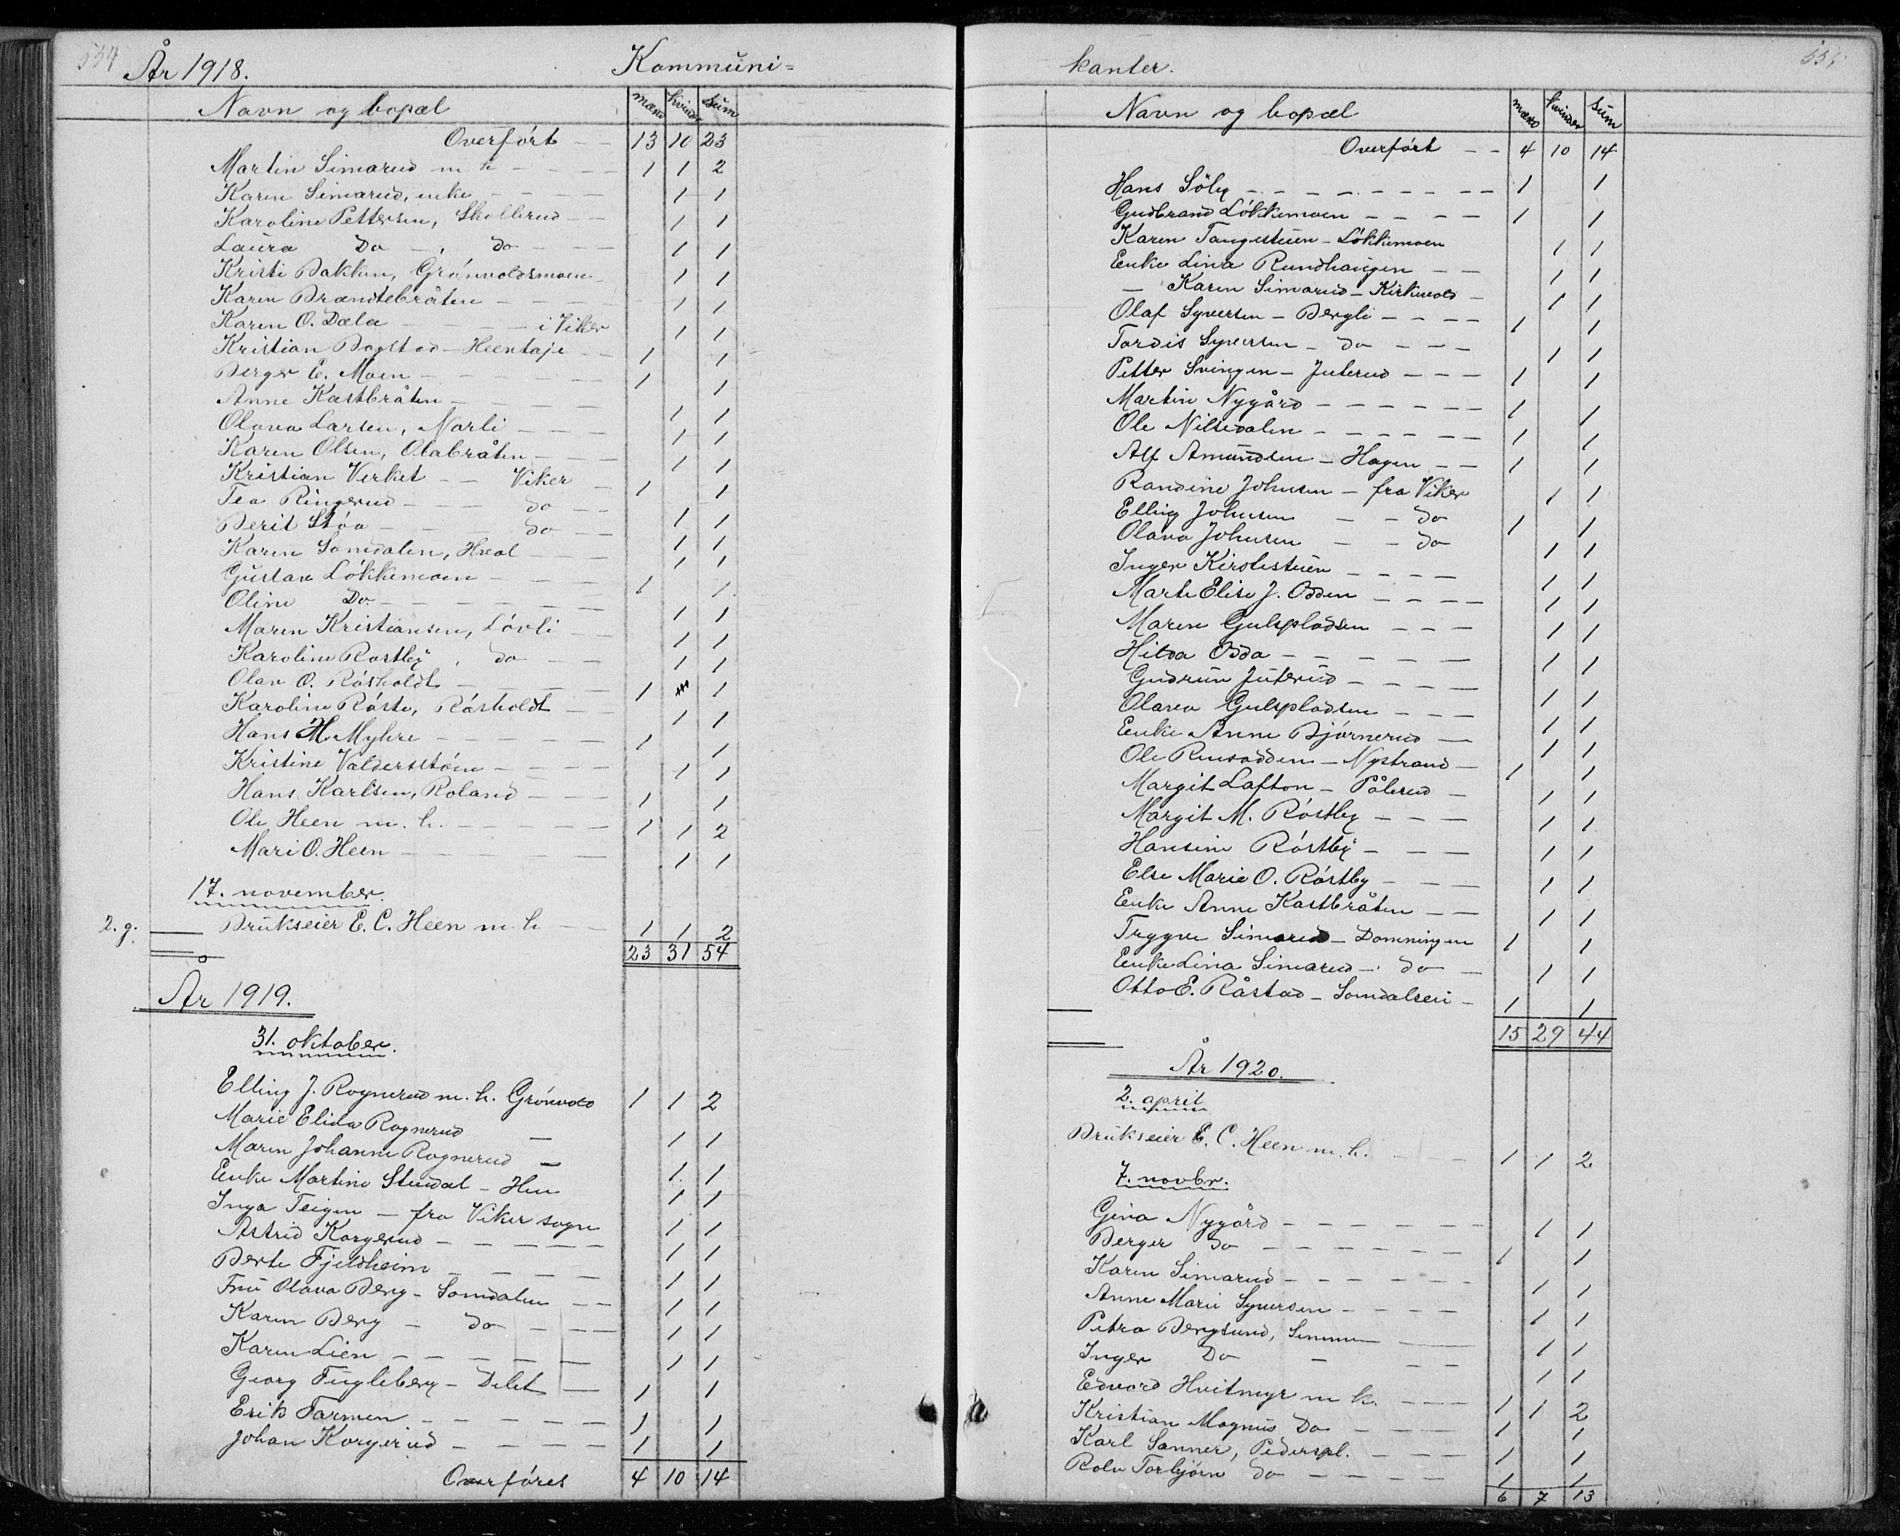 534 År 1918. Kommuni-
Navn og bopæl mænd kvinder sum
Overført 13 10 23
Martin Simarud m h 1 1 2
Karen Simarud, enke 1 1
Karoline Pettersen, Skollerud 1 1
Laura Do , do 1 1
Kristi Bakken, Grønvoldsmoen 1 1
Karen Brændtebråten 1 1
Karen O. Dæla i Viker 1 1
Kristian Bagstad - Heentaje 1 1
Berger E. Moen 1 1
Anne Kastbråten 1 1
Olava Larsen, Narli 1 1
Karen Olsen, Olabråten 1 1
Kristian Virket Viker 1 1
Tea Ringerud do 1 1
Berit Støa do 1 1
Karen Somdalen, Hval 1 1
Gustav Løkkemoen 1 1
Oline Do. 1 1
Maren Kristiansen, Løvli 1 1
Karoline Rostby, do 1 1
Olav O. Råsholdt 1 1
Karoline Røste, Råsholdt 1 1
Hans M. Myhre 1 1
Kristine Valdersstøen 1 1
Hans Karlsen, Roland 1 1
Ole Heen m. h. 1 1 2
Mari O. Heen 1 1
17. november.
2. g. Brukseier E. C. Heen m. h 1 1 2
23 31 54
År 1919.
31. oktober.
Elling J. Rognerud m. h. Grønvold 1 1 2
Marie Elida Rognerud — 1 1
Maren Johanne Rognerud — 1 1
Enke Martine Stendal - Hen 1 1
Inga Teigen — fra Viker sogn 1 1
Astrid Korgerud 1 1
Berte Fjeldheim 1 1
Fru Olava Berg - Somdalen 1 1
Karen Berg - do 1 1
Karen Lien 1 1
Georg Fugleberg - Delet 1 1
Erik Tarmen 1 1
Johan Korgerud 1 1
Overføres 4 10 14
kanter.
Navn og bopæl mænd kvinder sum
Overført 4 10 14
Hans Søby 1 1
Gudbrand Løkkemoen 1 1
Karen Tangestuen - Løkkemoen 1 1
Enke Lina Rundhaugen 1 1
— Karen Simarud - Kirkevold 1 1
Olaf Syversen - Bergli 1 1
Tordis Syversen - do 1 1
Petter Svingen - Juterud 1 1
Martin Nygård 1 1
Ole Nilsedalen 1 1
Alf Amundsen - Hagen 1 1
Randine Johnsen - fra Viker 1 1
Elling Johnsen - do 1 1
Olava Johnsen - do 1 1
Inger Kirstistuen 1 1
Marte Elise J. Odden 1 1
Maren Gulspladsen 1 1
Hilda Odda 1 1
Gudrun Juterud 1 1
Olava Gulspladsen 1 1
Enke Anne Bjørnerud 1 1
Ole Rusodden - Nystrand 1 1
Margit Lafton - Pålerud 1 1
Margit M. Røstby 1 1
Hansine Røstby 1 1
Else Marie O. Røstby 1 1
Enke Anne Kastbråten 1 1
Trygve Simarud - Domningen 1 1
Enke Lina Simarud - do 1 1
Otto E. Råstad - Somdalseie 1 1
15 29 44
År 1920.
2. april
Brukseier E. C. Heen m. h. 1 1 2
7. novbr.
Gina Nygård 1 1
Berger do 1 1
Karen Simarud 1 1
Anne Marie Syversen 1 1
Petra Bergsund, Simmen 1 1
Inger Do - 1 1
Edvard Hvitmyr m h. 1 1 2
Kristian Magnus Do 1 1
Karl Sanner, Pederspl. 1 1
Rolv Torbjørn do 1 1
6 7 13